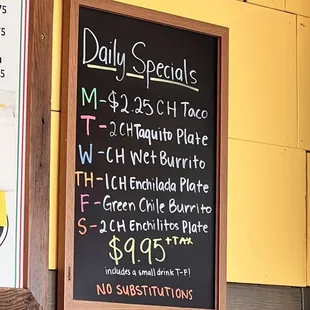 Daily Specials
M-$2.25 CH Taco
T-2CH Taquito Plate
W-CH Wet Burrito
TH-1CH Enchilada Plate
F-Green Chile Burrito
S-2CH Enchilitos Plate
$9.95 +TAX
includes a small drink T-F!
NO SUBSTITUTIONS